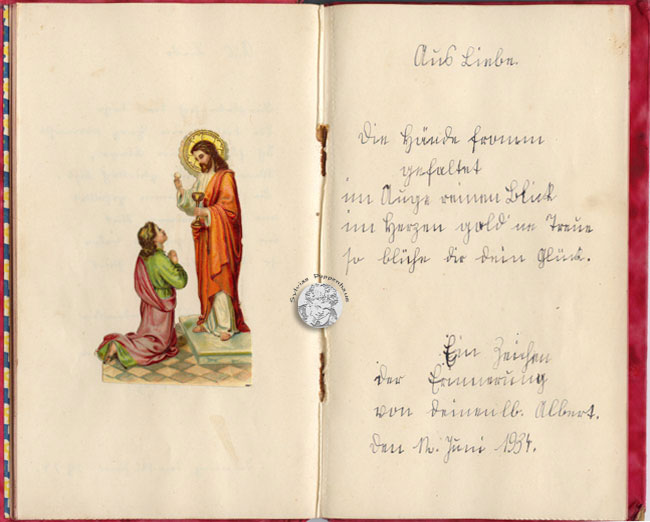 Aus Liebe.
Die Hände fromm
gefaltet
im Auge reinen Blick
im Herzen gold'ne Treue
so blühe dir dein Glück.
Ein Zeichen
der Erinnerung
von deinen lb. Albert.
den Juni 1934.
Sylvias Puppenhaus